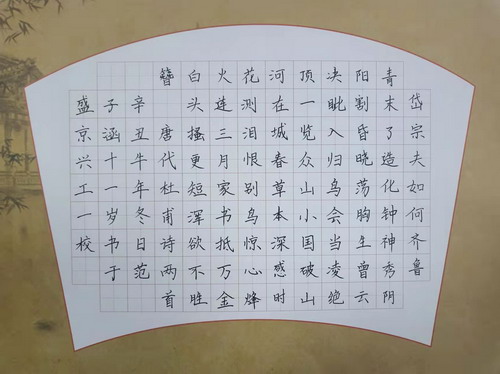 岱宗夫如何齐鲁
青未了造化钟神秀阴
阳割昏晓荡胸生曾云
决眦入归鸟会当凌绝
顶一览众山小国破山
河在城春草木深感时
花测泪恨别鸟惊心烽
火连三月家书抵万金
白头搔更短浑欲不胜
簪 唐代杜甫诗两首
辛丑牛年冬日范
子涵十一岁书于
盛京兴工一校